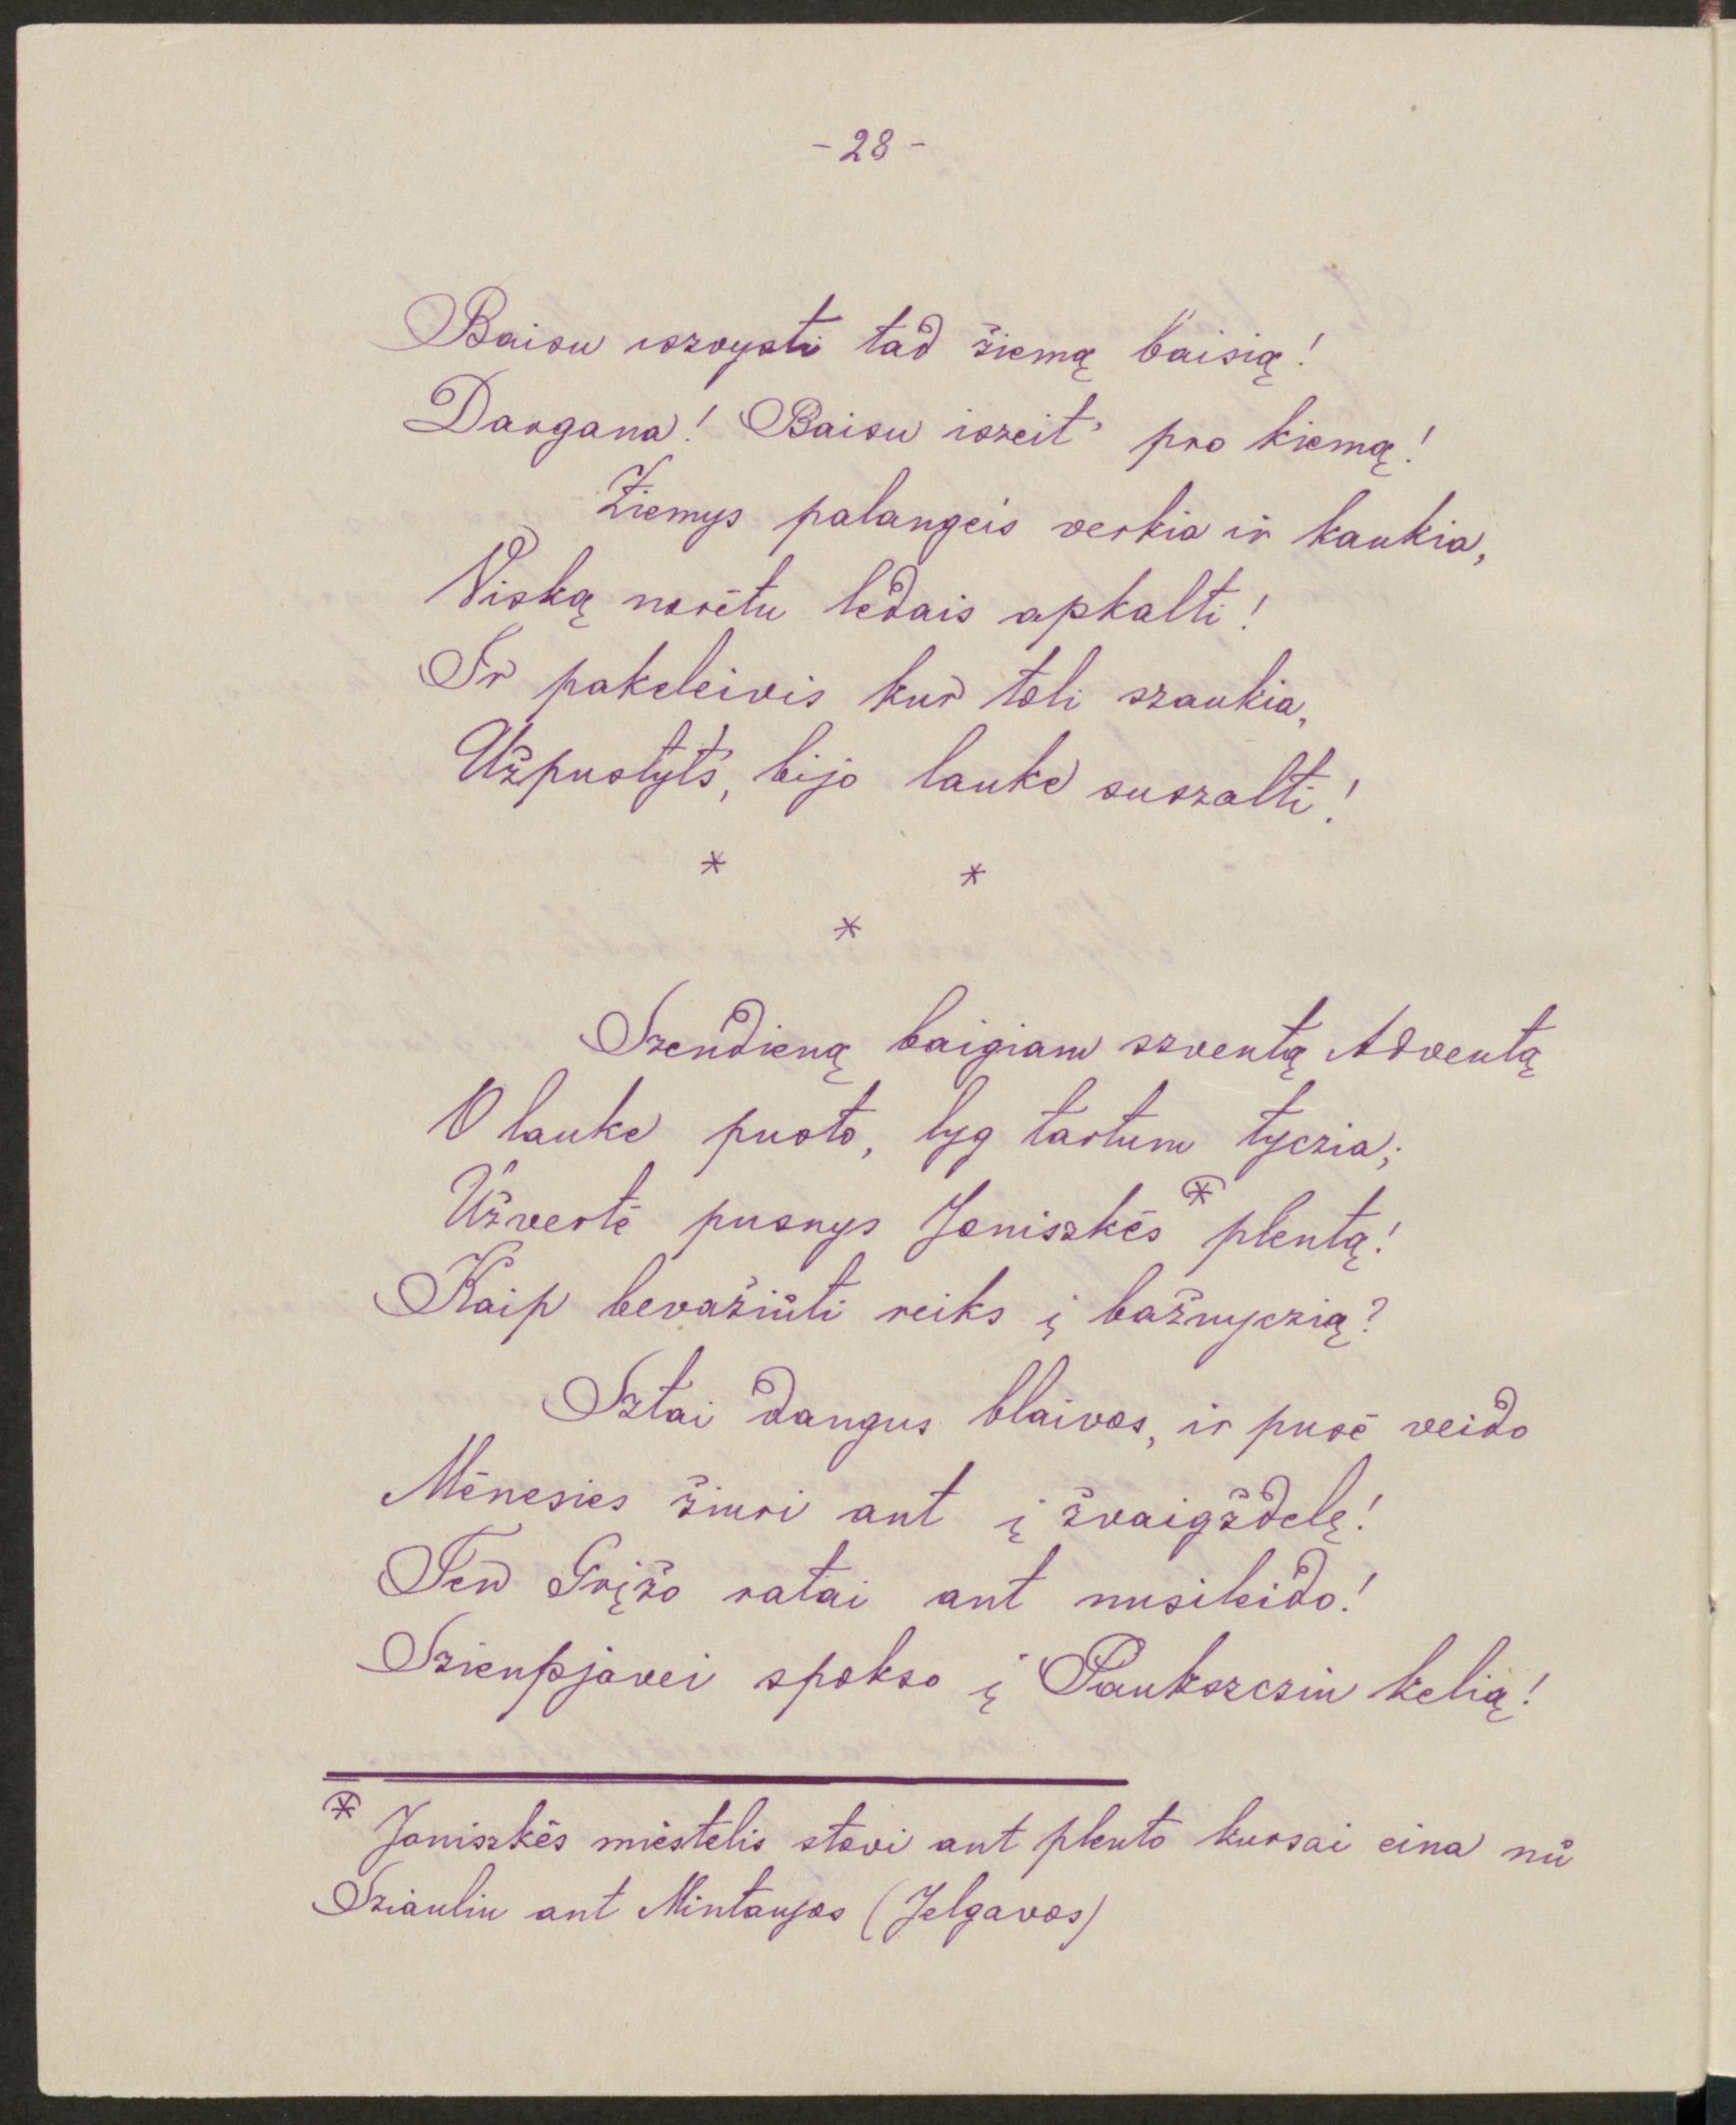 - 28 -
Baisu iszvysti tad žiemą baisią!
Dargana! Baisu iszeit' pro kiemą!
Žiemys palangeis verkia ir kaukia,
Viską norėtu ledais apkalti!
Ir pakeleivis kur toli szaukia,
Užpustyts, bijo lauke suszalti!
* *
*
Szendieną baigiam szventą Adventą
O lauke pusto, lyg tartum tyczia;
Užvertė pusnys Joniszkės * plentą!
Kaip bevažiůti reiks į bažnyczią?
Sztai dangus blaivos, ir pusė veido
Mėnesies žiuri ant į žvaigždelę!
Ten Grįžo ratai ant nusileido!
Szienpjovei spokso į Paukszcziu kelią!
* Joniszkės miestelis stovi ant plento kursai eina nů
Sziauliu ant Mintaujos (Jelgavos)